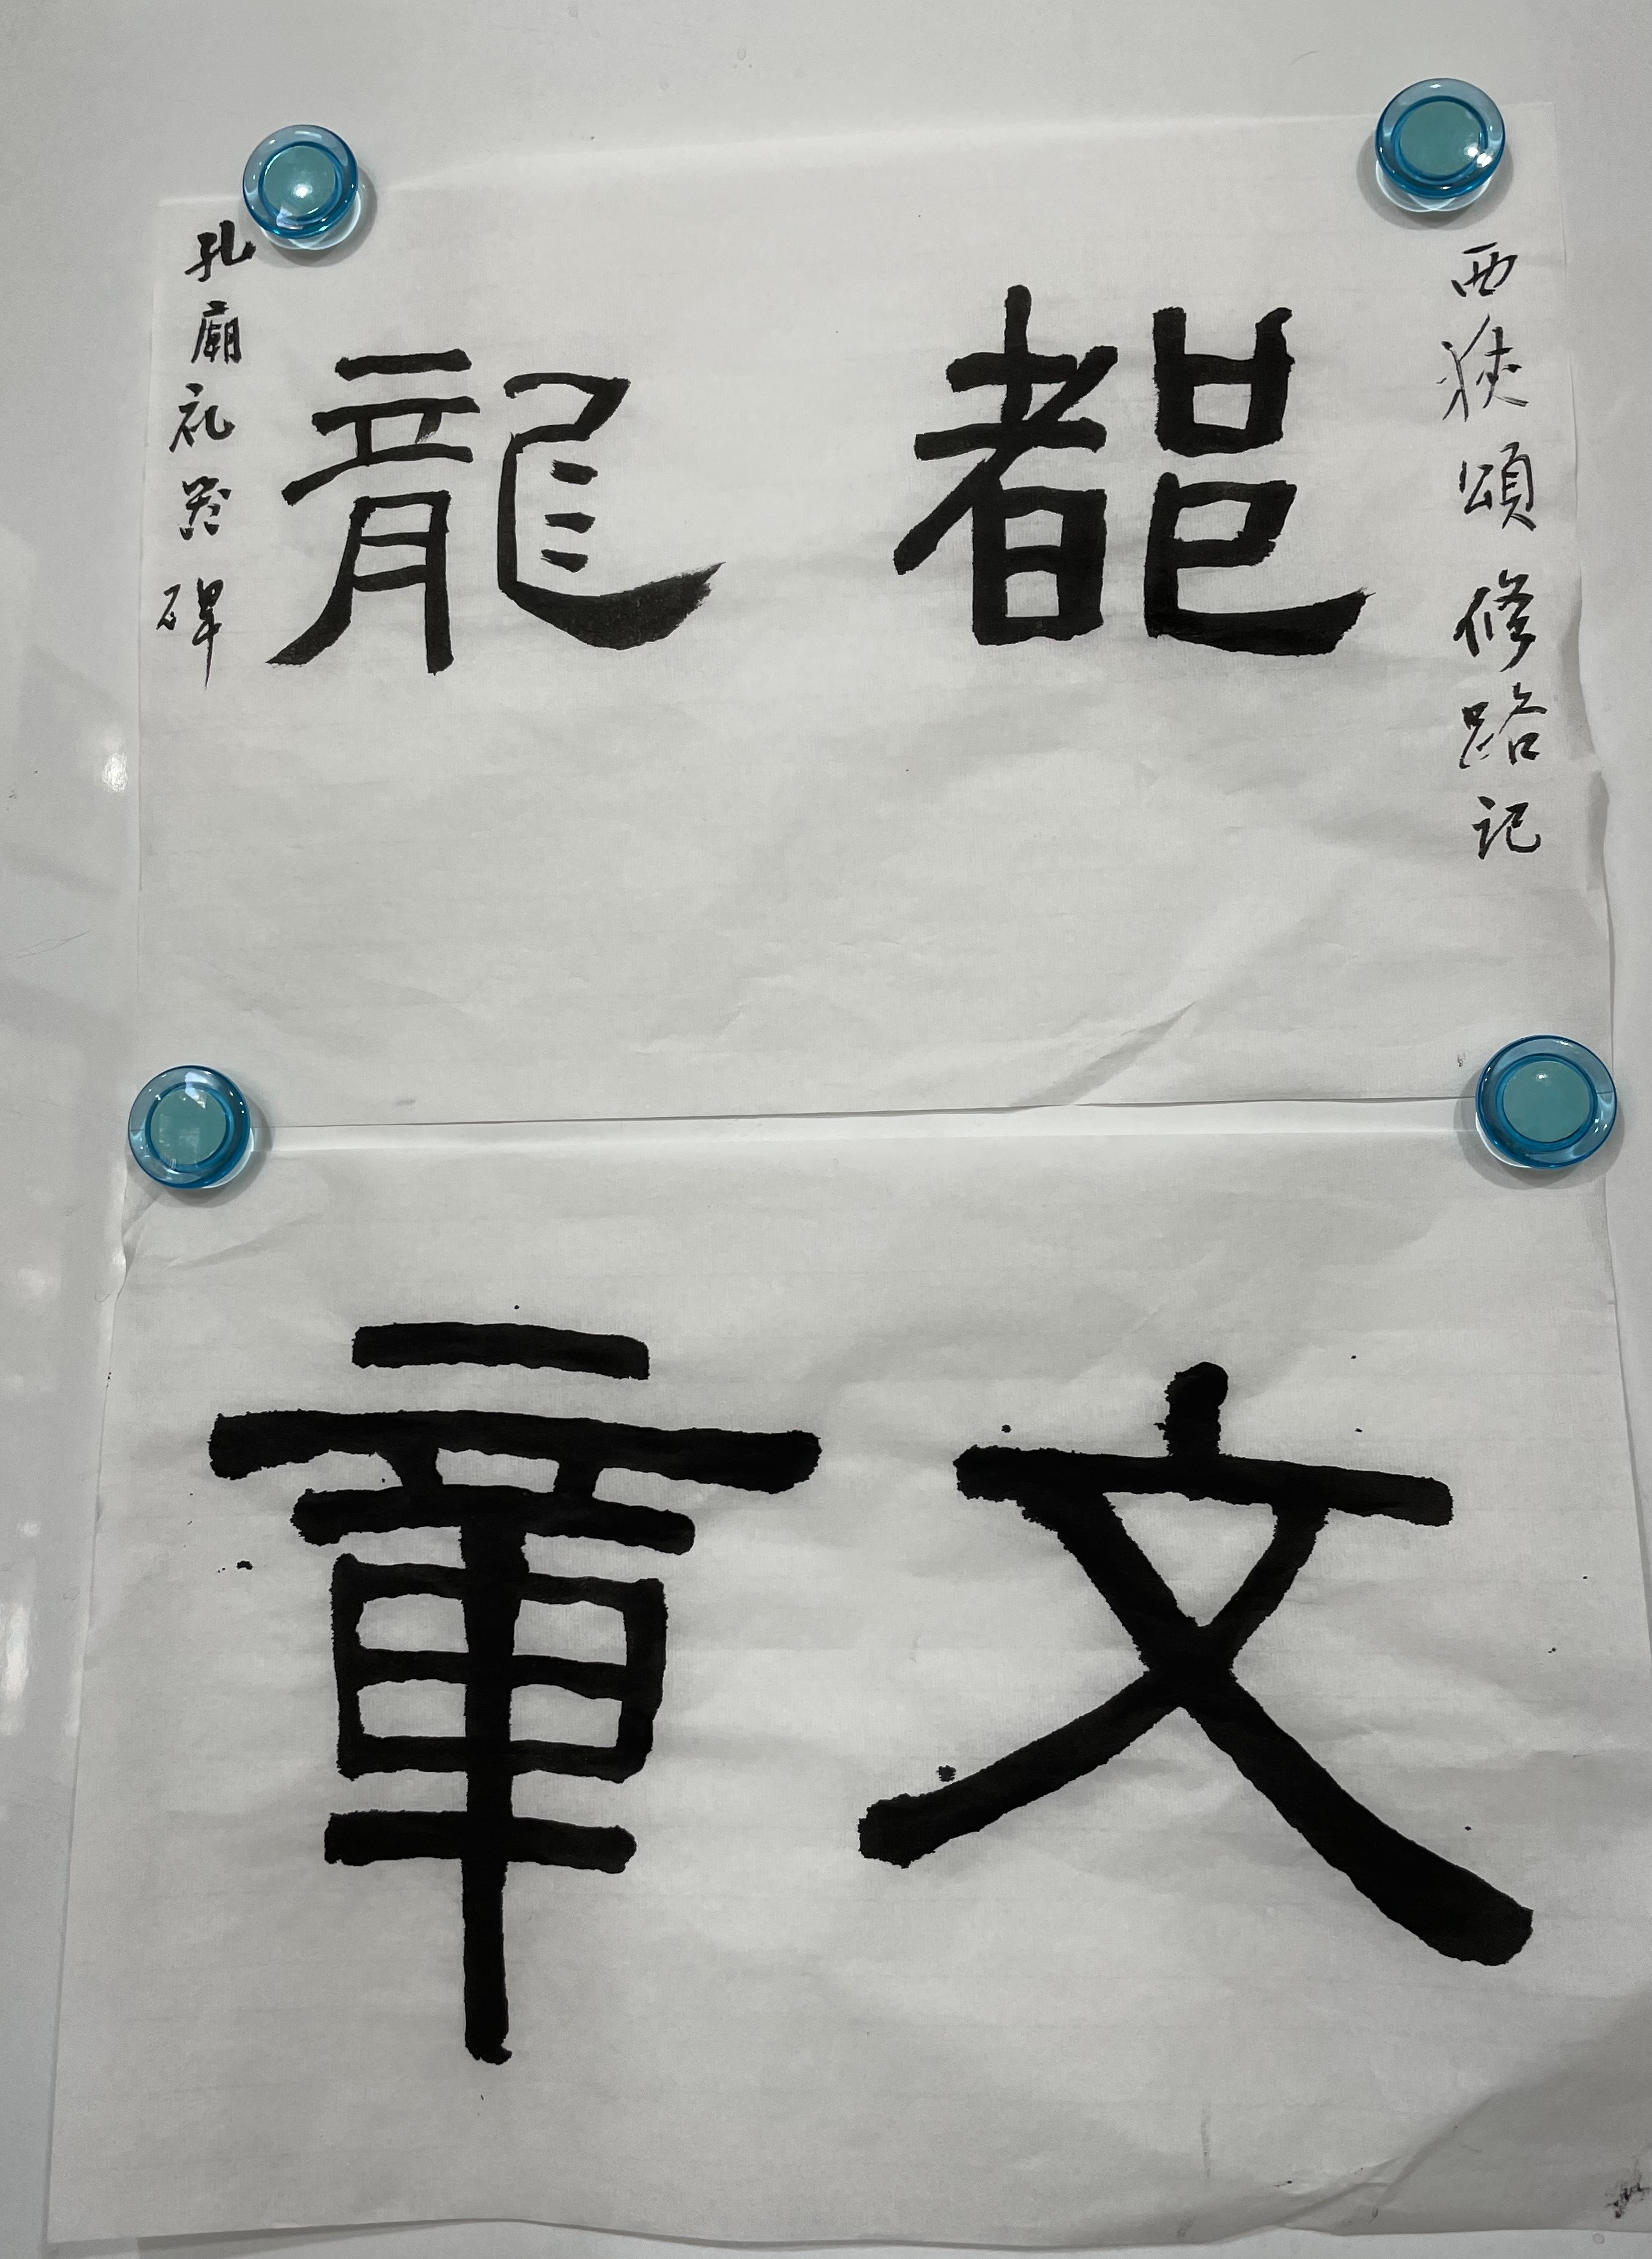 西狹頌 修路记
都龍
孔廟礼器碑
文章